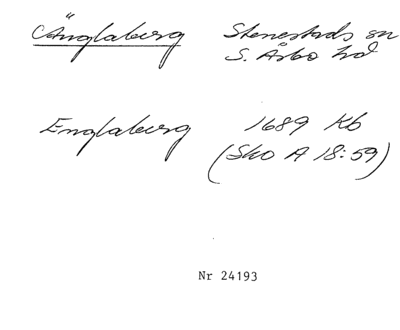 Änglaberg Stenestads sn
S. Åsbo hd
Englaberg 1689 Kb
(Sko A 18:59)
Nr 24193